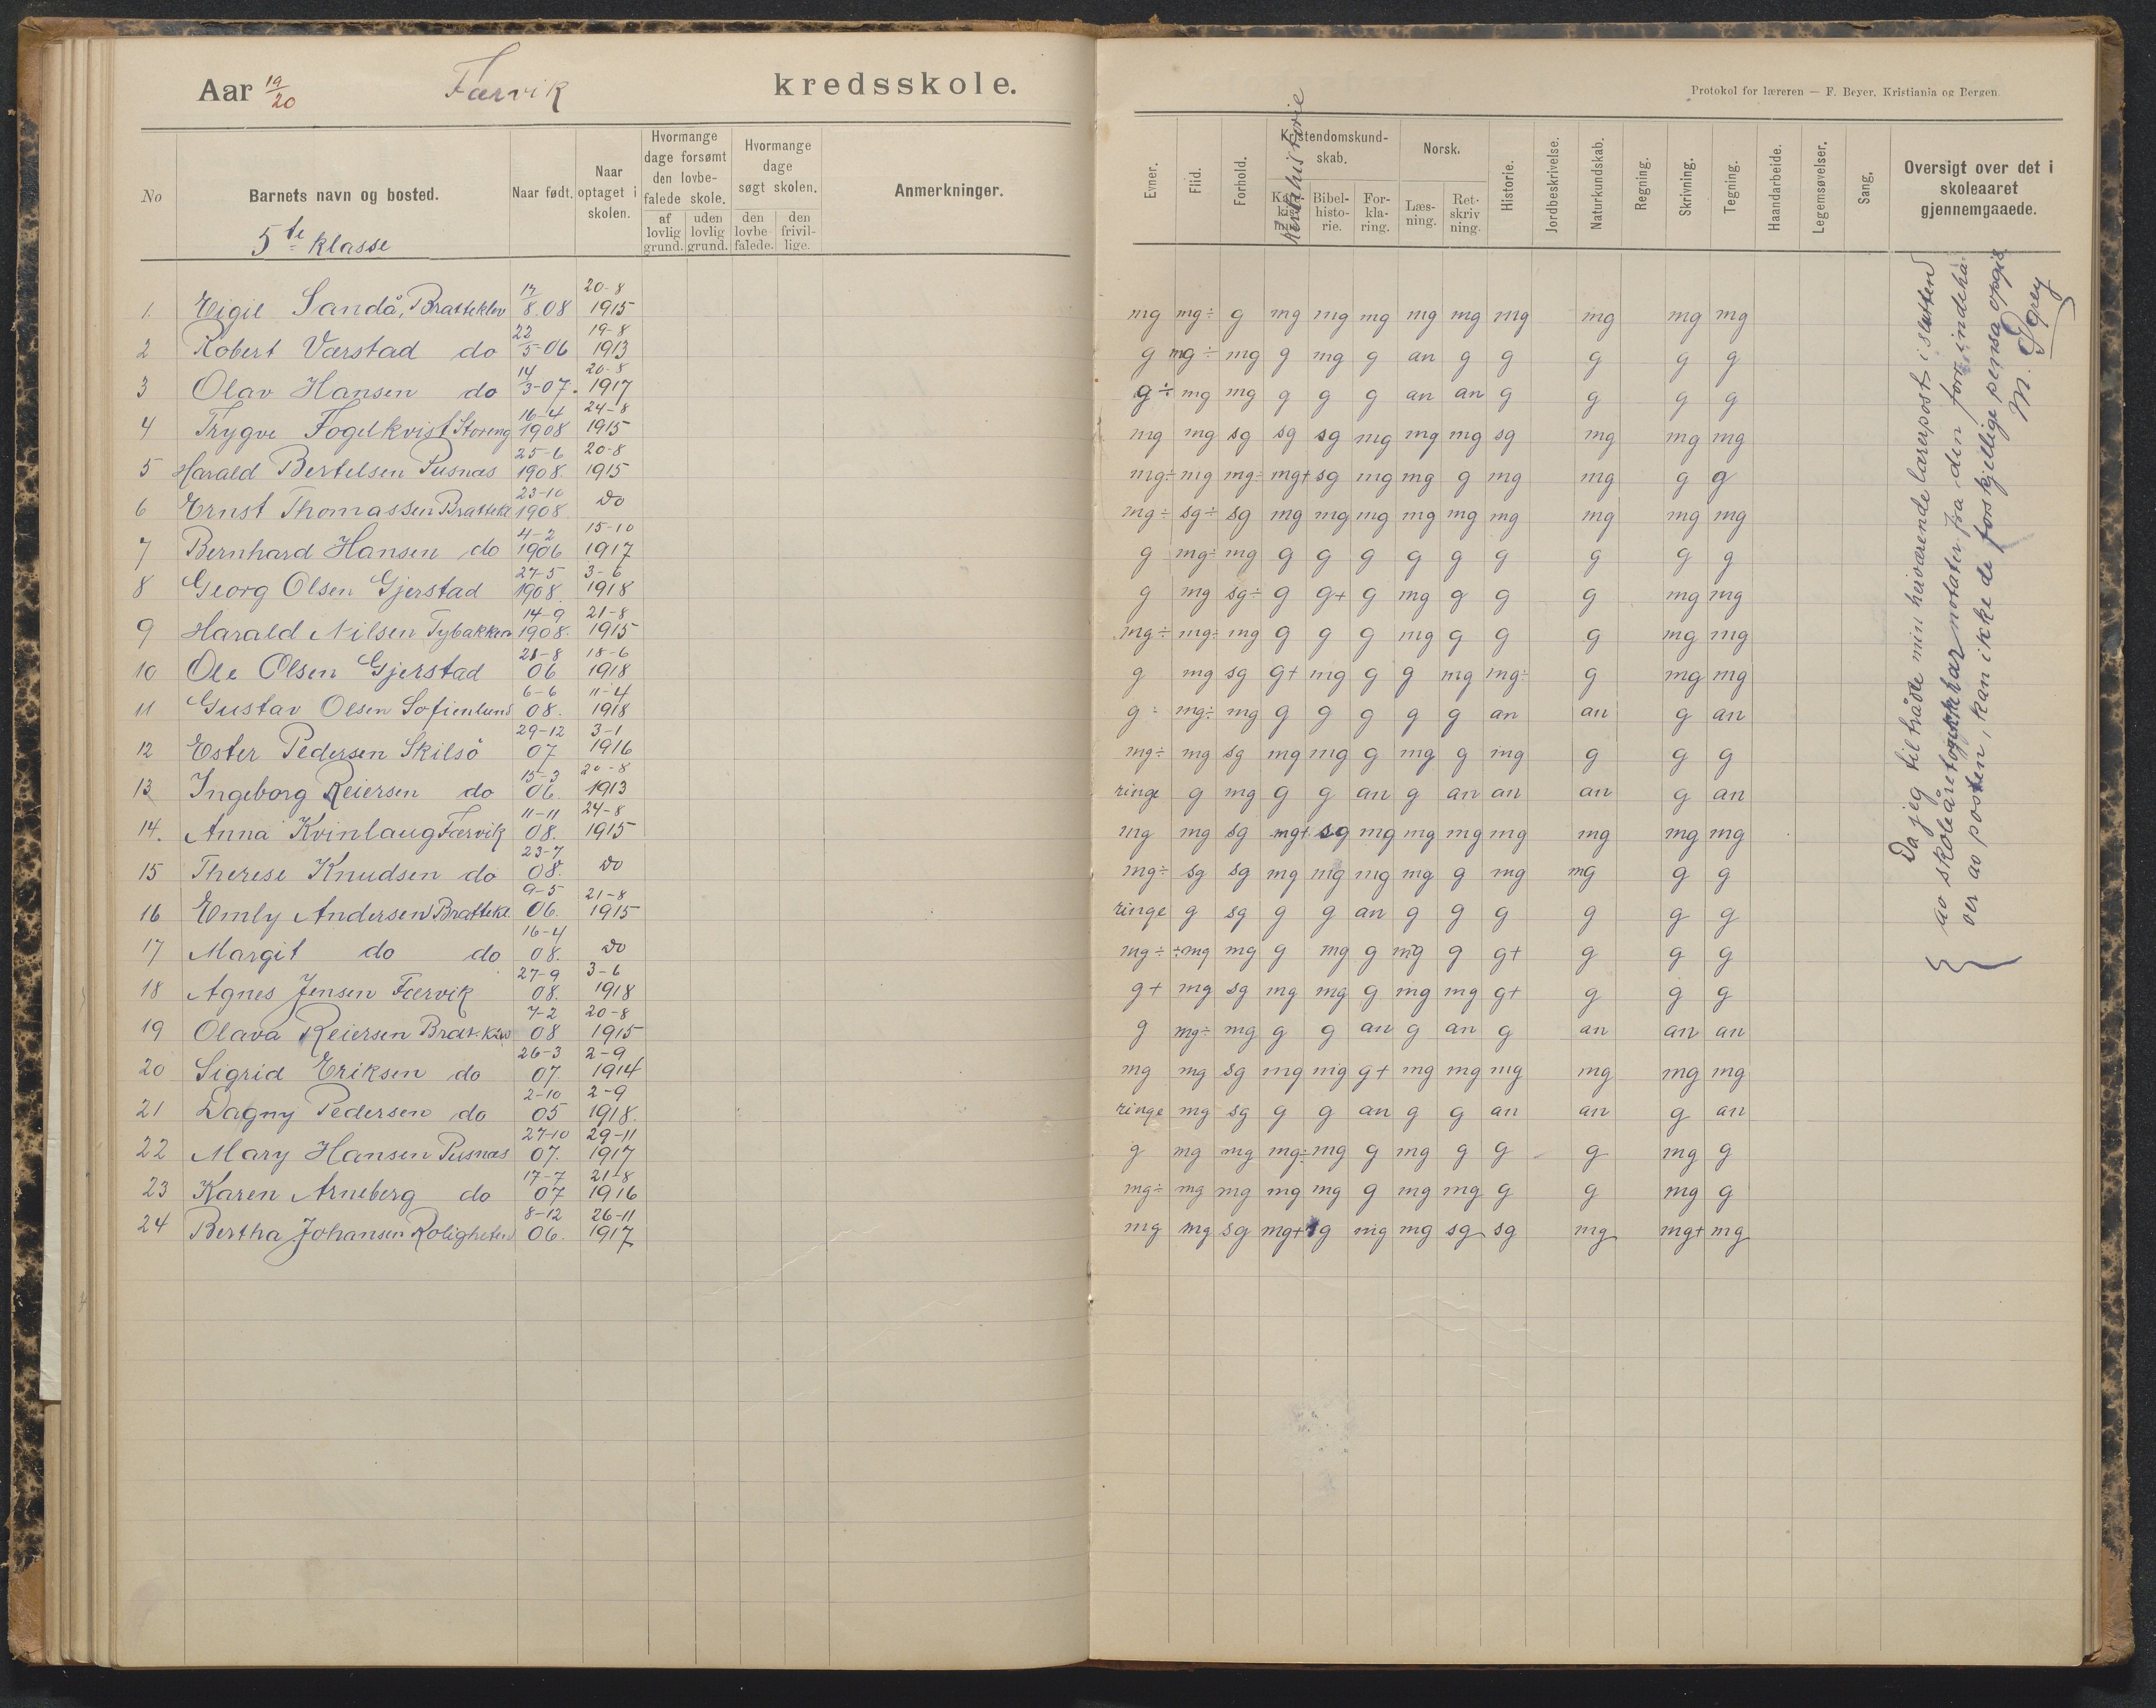 Aar 19/20 Færvik kredsskole.
No Barnets navn og bosted. Naar født. Naar optaget i skolen. Hvormange dage forsømt den lovbefalede skole. af lovlig grund. uden lovlig grund. Hvormange dage søgt skolen. den lovbefalede. den frivillige. Anmerkninger.
5te klasse
1. Eigil Sandå, Bratteklev 17/8.08 20-8 1915
2 Robert Værstad do 22/5-06 19-8 1913
3 Olav Hansen do 14/3-07. 20-8 1917
4 Trygve Fogelkvist Storeng 16-4 1908 24-8 1915
5 Harald Bertelsen Pusnæs 25-6 1908. 20-8 1915
6 Ernst Thomassen Brattekl 23-10 1908 do
7 Bernhard Hansen do 4-2 1906 15-10 1917
8 Georg Olsen Gjerstad 27-5 1908. 3-6 1918
9 Harald Nilsen Tybakken 14-9 1908. 21-8 1915
10 Ole Olsen Gjerstad 21-8 06 18-6 1918
11 Gustav Olsen Sofienlund 6-6 08. 11-4 1918
12 Ester Pedersen Skilsö 29-12 07 3-1 1916
13 Ingeborg Reiersen do 15-3 06. 20-8 1913
14. Anna Kvinlaug Færvik 11-11 08. 24-8 1915
15 Therese Knudsen do 23-7 08. do
16 Emly Andersen Brattekl. 9-5 06. 21-8 1915
17 Margit do do 16-4 08. do
18 Agnes Jensen Færvik 27-9 08. 3-6 1918
19 Olava Reiersen Brat.klev 7-2 08 20-8 1915
20 Sigrid Eriksen do 26-3 07 2-9 1914
21 Dagny Pedersen do 2-10 05 2-9 1918.
22 Mary Hansen Pusnæs 27-10 07. 29-11 1917
23 Karen Arneberg do 17-7 07 21-8 1916
24 Bertha Johansen Roligheten 8-12 06. 26-11 1917
Protokol for læreren — F. Beyer, Kristiania og Bergen.
Evner. Flid. Forhold. Kristendomskundskab. Kirkehistorie Bibelhistorie. Forklaring. Norsk. Læsning. Retskrivning. Historie. Jordbeskrivelse. Naturkundskab. Regning. Skrivning. Tegning. Haandarbeide. Legemsøvelser. Sang. Oversigt over det i skoleaaret gjennemgaaede.
mg mg÷ g mg mg mg mg mg mg mg mg mg
g mg÷ mg g mg g an g g g g g
g÷ mg mg g g g an an g g g g
mg mg sg sg sg mg mg mg sg mg mg mg
mg÷ mg mg÷ mg+ sg mg mg g mg mg g g
mg÷ sg÷ sg mg mg mg mg mg mg mg mg mg
g mg÷ mg g g g g g g g g g
g mg sg÷ g g+ g mg g g g mg mg
mg÷ mg÷ mg g g g mg g g g mg mg
g mg sg g+ mg g g mg mg÷ g mg mg
g÷ mg÷ mg g g g g g an an g an
mg÷ mg sg mg mg g mg g mg g g g
ringe g mg g g an g an an an g an
mg mg sg mg+ sg mg mg mg mg mg mg mg
mg÷ sg sg mg mg mg mg g mg mg g g
ringe g sg g g an g g g g g g
mg÷ ÷mg mg g mg g mg g g+ g g g
g+ mg sg mg mg g mg mg g+ g g g
g mg÷ mg g g an g an g an an an
mg mg sg mg mg g+ mg mg mg mg mg mg
ringe mg sg g g an g g an an g an
g mg mg mg÷ mg g mg g g - g mg g
mg÷ mg mg mg mg g mg mg g g mg g
mg mg sg mg+ sg mg mg sg sg mg mg+ mg
Da jeg tiltrådte min heværende lærerpost i slutten
av skoleåret og ikke har notater fra den forr. indeha-
ver av posten, kan ikke de forskjellige pensa opgis.